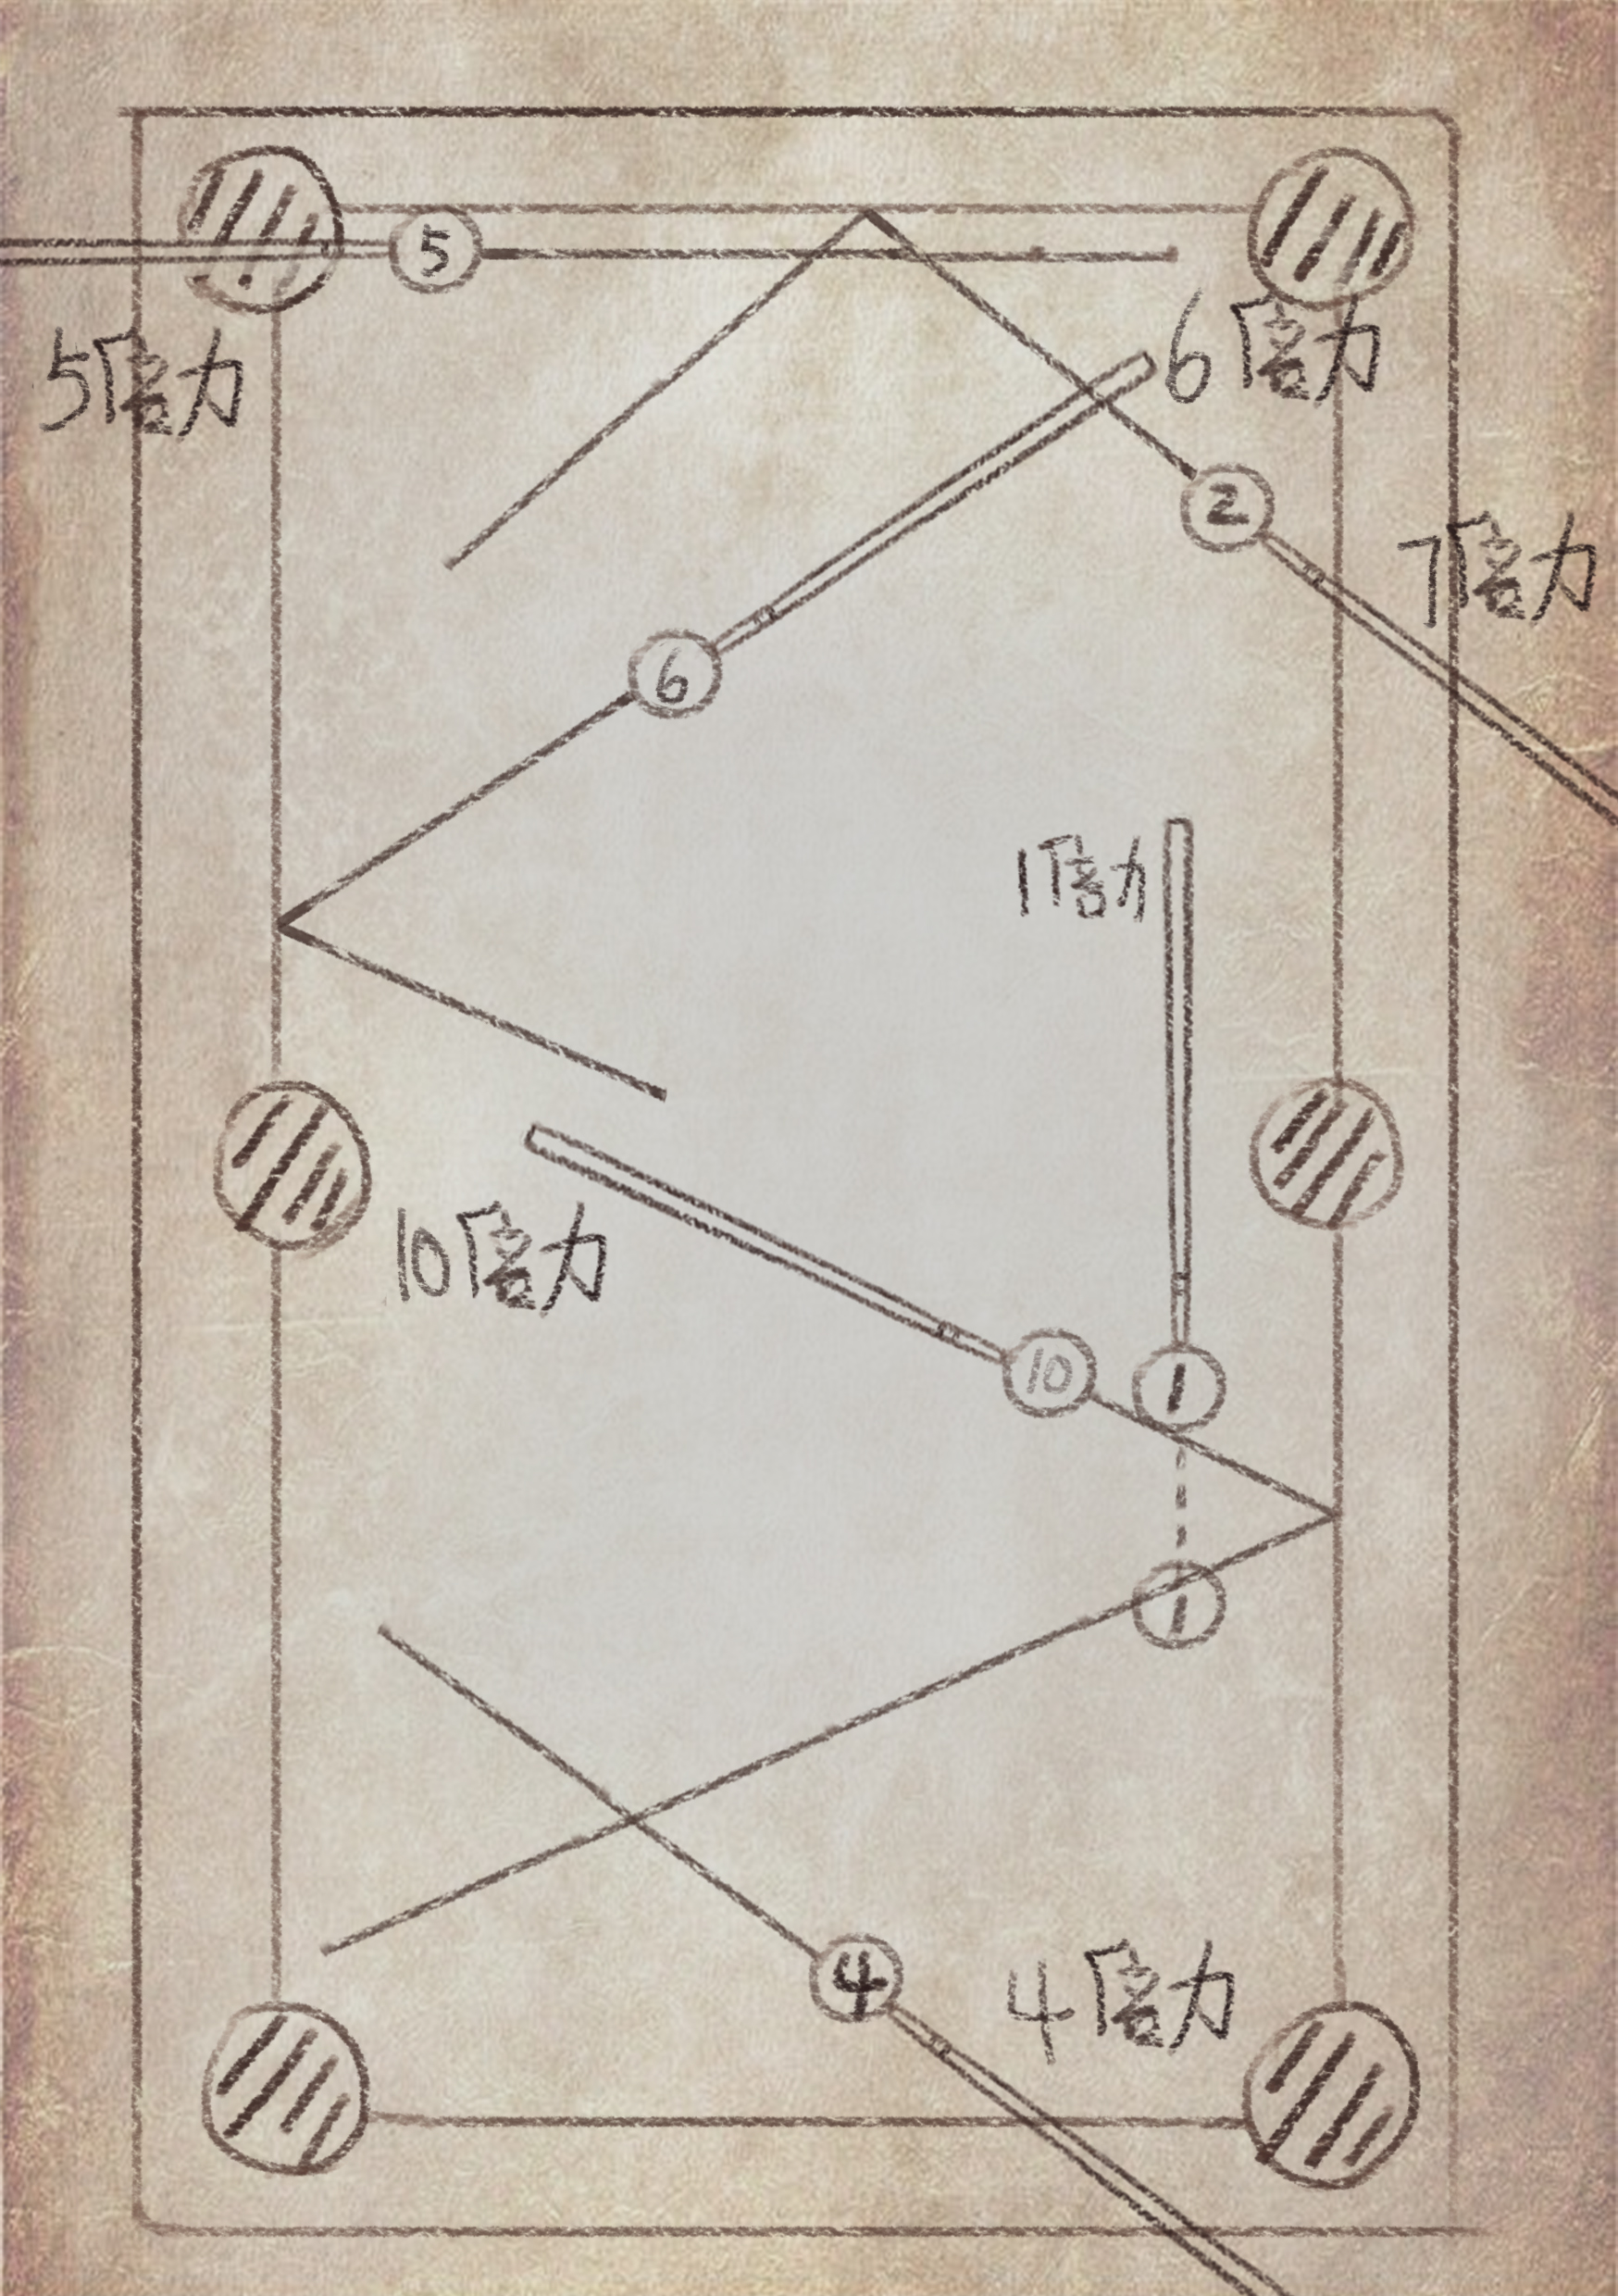 5
5倍力
6倍力
2
7倍力
6
1倍力
10倍力
10
1
1
4
4倍力